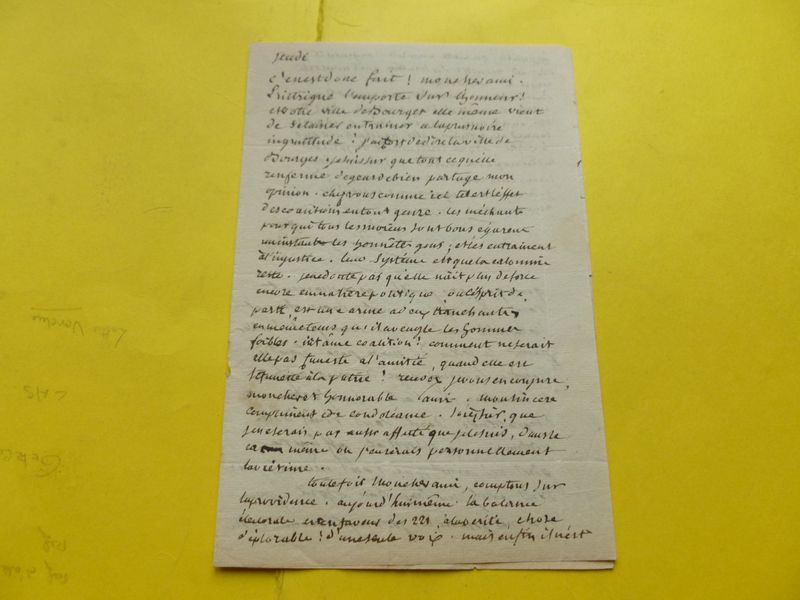 jeudi
c'en est donc fait ! mon cher ami.
l'intrigue l'emporte sur l'honneur !
et votre ville de Bourges elle même vient
de se laisser entrainer a la plus noire
ingratitude ! j'ai tort de dire la ville de
Bourges je suis sur que tout ce qu'elle
renferme de gens de bien partage mon
opinion. chez vous comme ici tel est l'effet
des coalitions en tout genre. les méchants
pour qui tous les moiens sont bons égarent
un instant les honnêtes gens ; et les entrainent
à l'injustice. leur système est que la calomnie
reste. je ne doute pas qu'elle n'ait plus de force
encore en matiere politique, où l'esprit de
parti est une arme a deux tranchants
en même tems qu'il aveugle les hommes
foibles. infâme coalition ! comment ne serait
elle pas funeste a l'amitié, quand elle est
si funeste à la patrie ! recevez je vous en conjure,
mon cher et honnorable ami. mon sincere
compliment de condoléance. soiez sur, que
je ne serais pas aussi affecté que je le suis, dans le
cas même ou j'en serais personnellement
la victime.
toutefois mon cher ami, comptons sur
la providence. aujourd'hui même la balance
électorale est en faveur des 221, a la verité, chose
déplorable ! d'une seule voix. mais enfin il n'est
Lettre Vendue
LAS